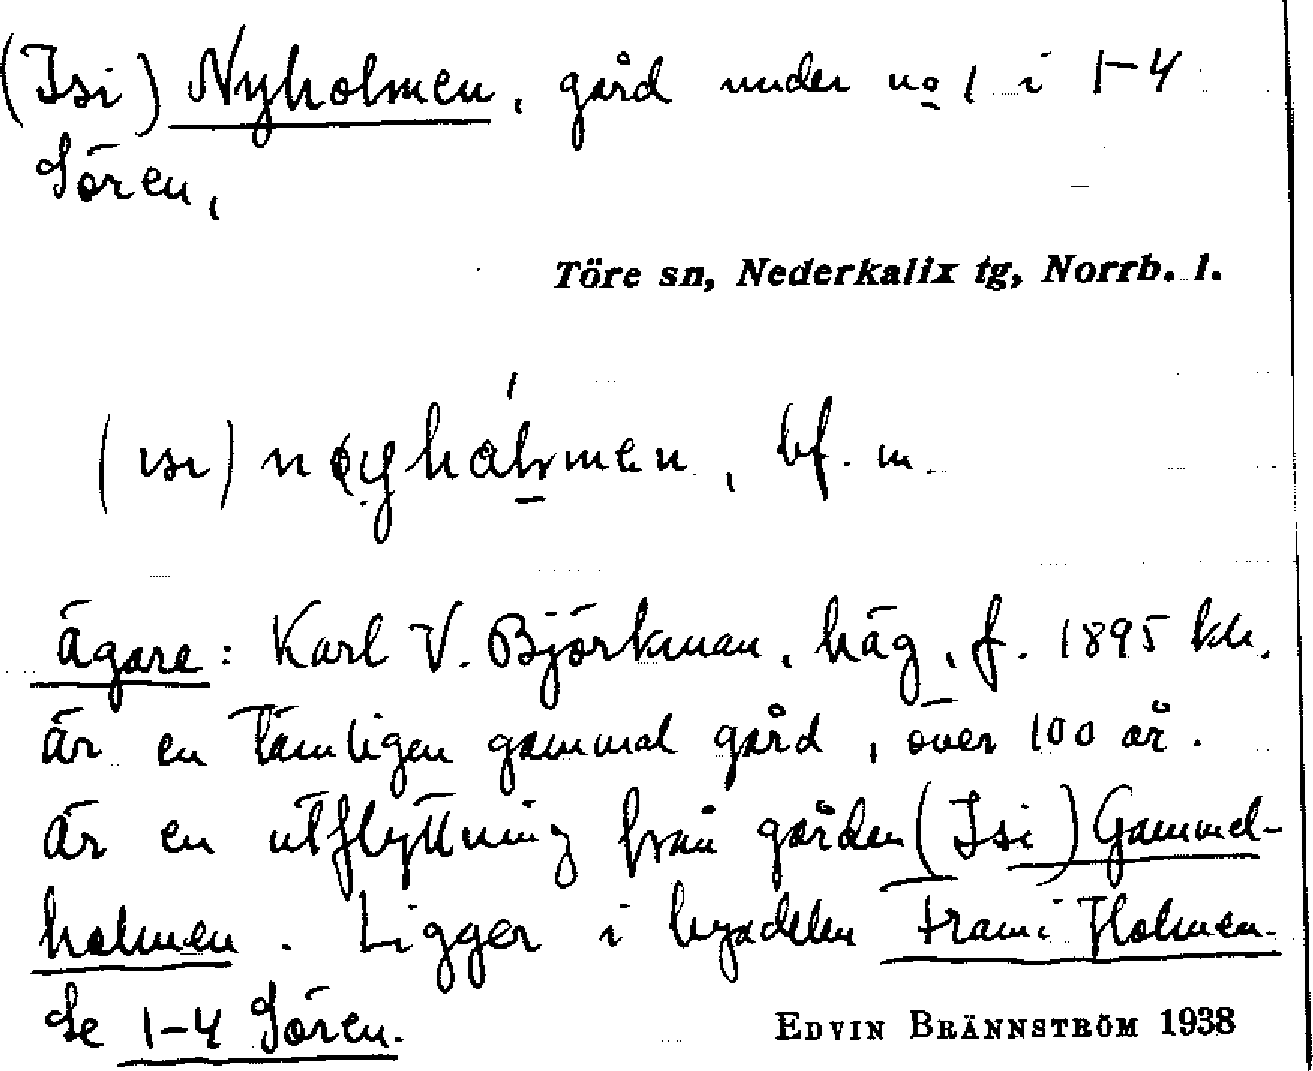 (Isi) Nyholmen, gård under no 1 i 1-4
Sören,
Töre sn, Nederkalix tg, Norrb. l.
(ısı) , bf. m.
Ägare: Karl V. Björkman, häg, f. 1895 kh.
Är en tämligen gammal gård, över 100 år.
Är en utflyttning från gården (Isi) Gammel-
holmen. Ligger i bydelen Frami Holmen.
Se 1-4 Sören.
EDVIN BRÄNNSTRÖM 1938